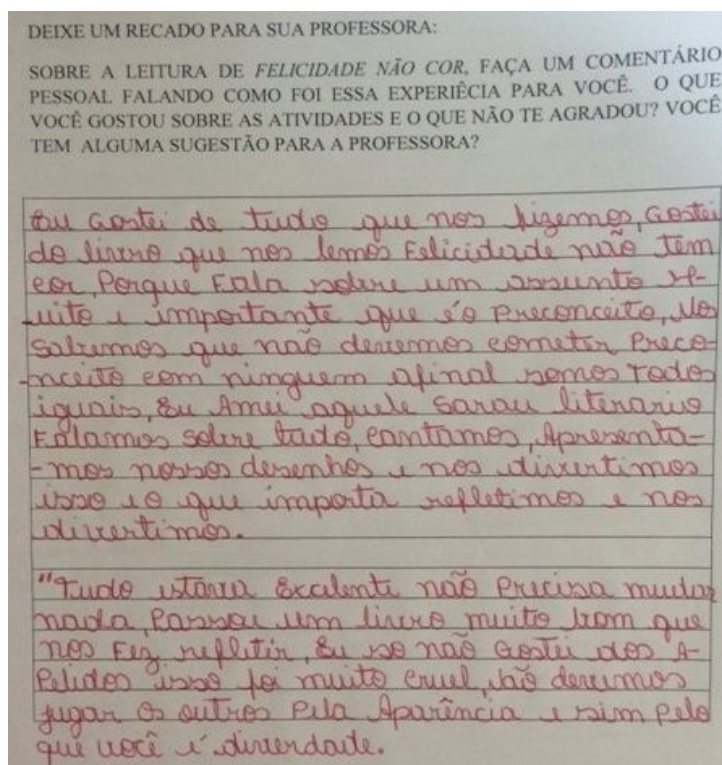 DEIXE UM RECADO PARA SUA PROFESSORA:
SOBRE A LEITURA DE FELICIDADE NÃO COR, FAÇA UM COMENTÁRIO
PESSOAL FALANDO COMO FOI ESSA EXPERIÊCIA PARA VOCÊ. O QUE
VOCÊ GOSTOU SOBRE AS ATIVIDADES E O QUE NÃO TE AGRADOU? VOCÊ
TEM ALGUMA SUGESTÃO PARA A PROFESSORA?
Eu Gostei de tudo que nos fizemos, Gostei
do livro que nos lemos Felicidade não tem
cor, Porque Fala sobre um assunto M-
uito e importante que é o Preconceito, Nos
Sabemos que não devemos cometer Preco-
-nceito com ninguem afinal somos Todos
iguais, Eu Amei aquele Sarau literario
Falamos Sobre tudo, cantamos, Apresenta-
-mos nossos desenhos e nos divertimos
isso e o que importa refletimos e nos
divertimos.
"Tudo estava Excelente não Precisa mudar
nada, Passou um livro muito bom que
nos Fez refletir, Eu so não Gostei dos A-
Pelidos isso foi muito cruel, não devemos
jugar os outros Pela Aparência e sim Pelo
que você é diverdade.